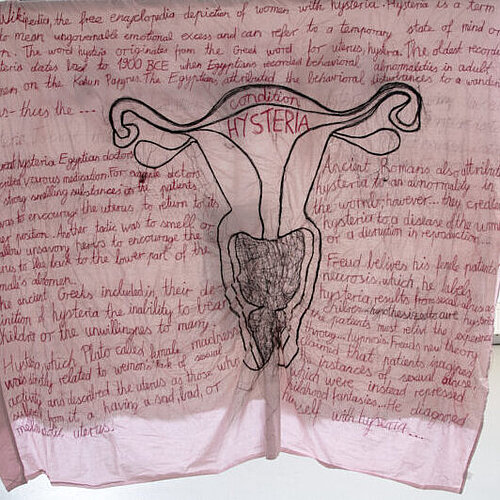 Wikipedia, the free encyclopedia depiction of women with hysteria. Hysteria is a term
to mean ungovernable emotional excess and can refer to a temporary state of mind or
The word hysteria originates from the Greek word for uterus, hystera. The oldest record
dates back to 1900 BCE when Egyptians recorded behavioral abnormalities in adult
on the Kahun Papyrus. The Egyptians attributed the behavioral disturbances to a
thus the
condition
HYSTERIA
hysteria Egyptian doctors
various medication for
strong smelling substances on the patients
was to encourage the uterus to return to its
position. Another tactic was to smell or
unsavory herbs to encourage the
to back to the lower part of the
abdomen.
the ancient Greeks included in their de-
inition of hysteria the inability to bear
children or the unwillingness to marry.
Hysteria, which Plato called female madness
was directly related to women's lack of sexual
activity and described the uterus as those who
suffered from it, a having a sad, bad, or
uterus.
Ancient Romans also attributed
hysteria to an abnormality in
the womb, however... they
hysteria to a disease of the womb
or a disruption in reproduction...
Freud believes his female patients
which, he labels
hysteria, results from sexual abuse as
children
the patients must relive the experiences
through... hypnosis. Freud's new theory
claimed that patients imagined
instances of sexual abuse,
which were instead repressed
childhood fantasies... He diagnosed
himself with hysteria...